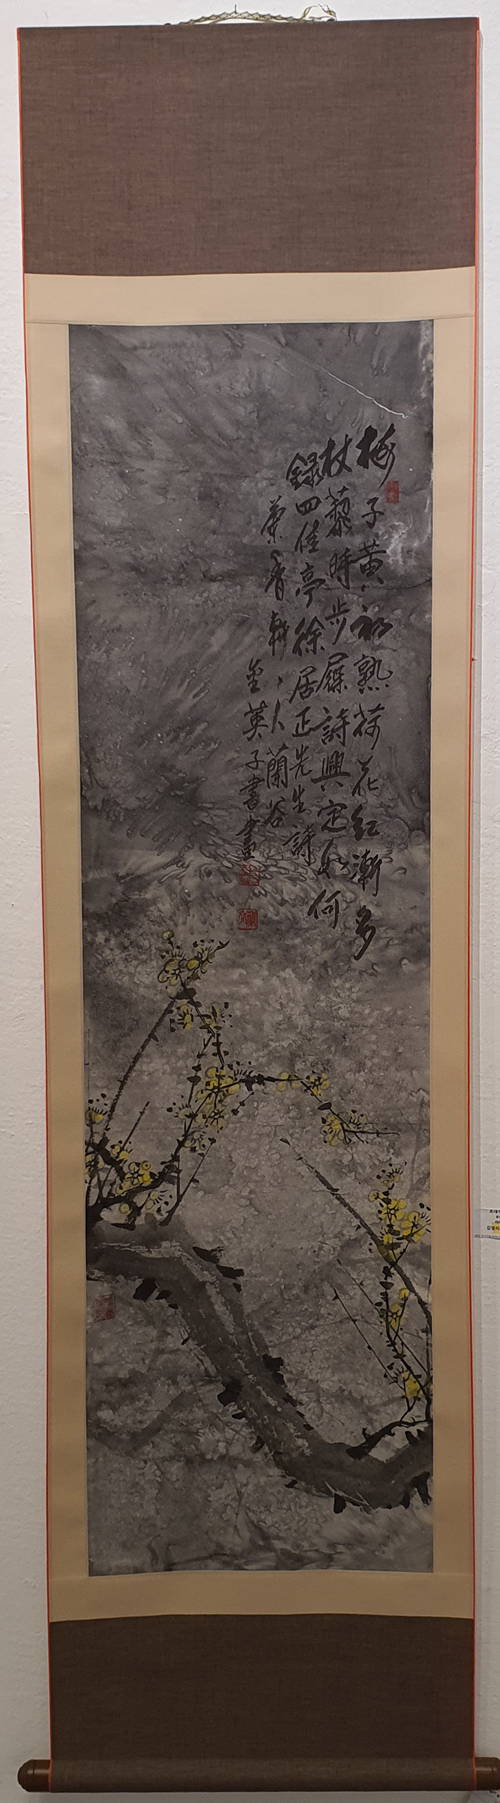 梅子黃初熟荷花紅漸多
杖藜時步屧詩興定如何
錄四佳亭徐居正先生詩
蘭谷
金英子書畫